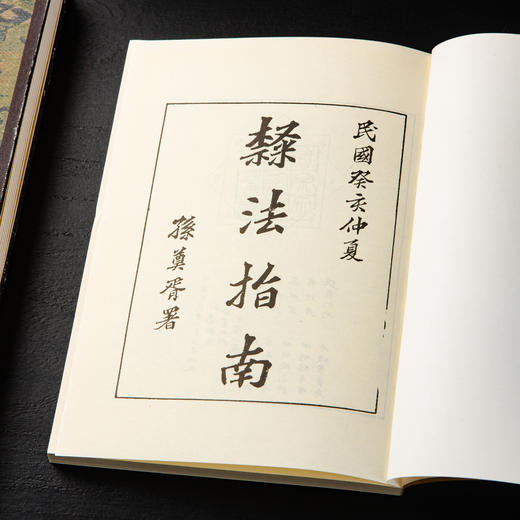 民國癸亥仲夏
隸法指南
孫奠胥署